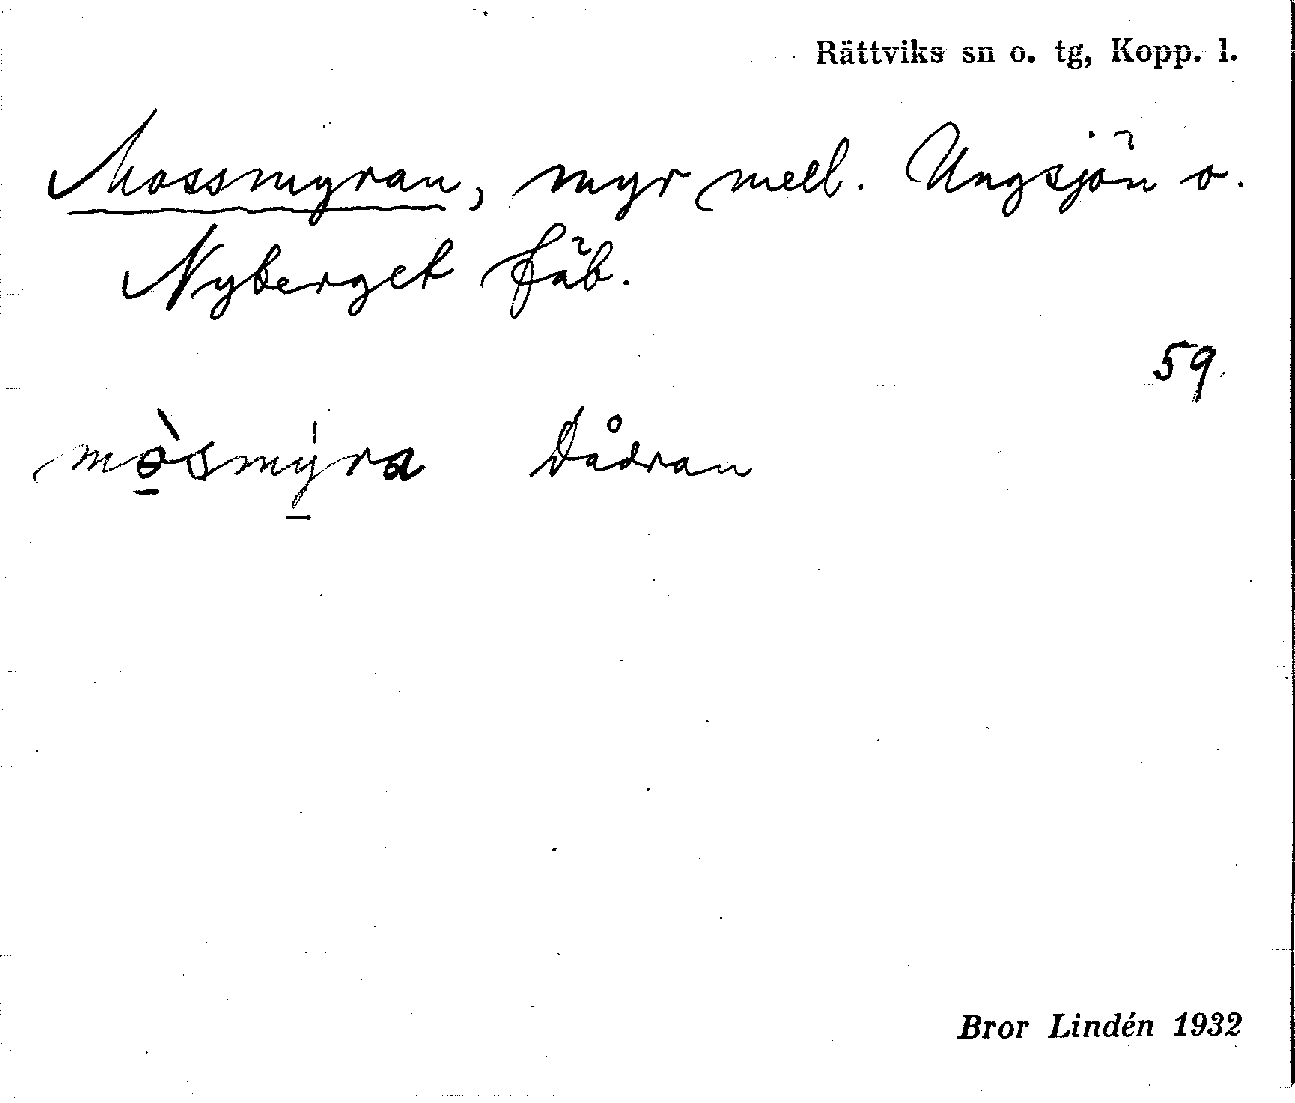 Rättviks sn o. tg, Kopp. l.
Mossmyran, myr mell. Ungsjön o.
Nyberget fäb.
59.
mò̠smy̠̍ra Dådran
Bror Lindén 1932